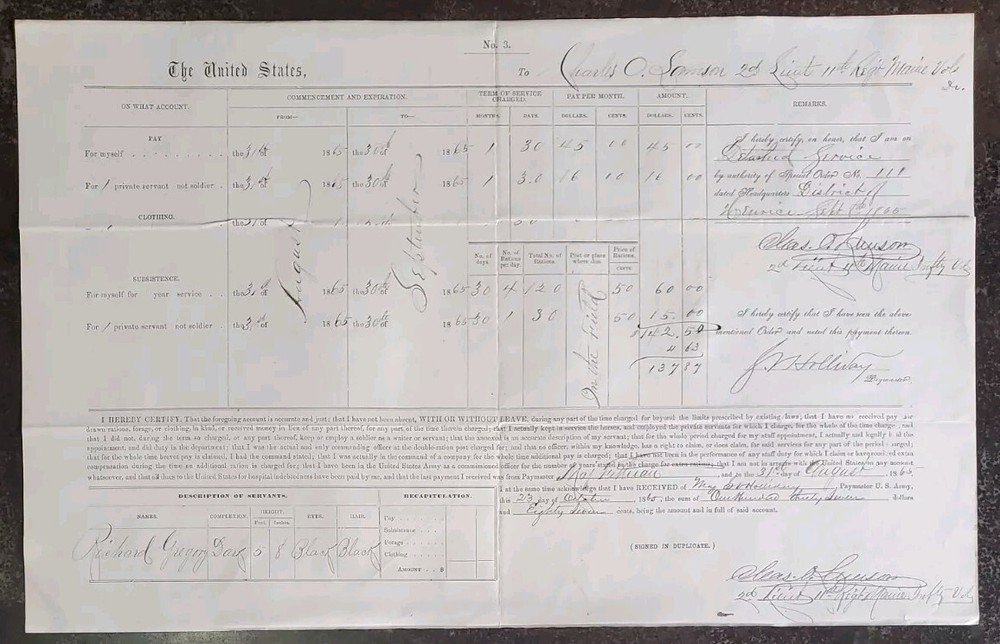 No. 3.
The United States,
To Charles O. Lamson 2d Lieut 11th Regt Maine Vols
Dr.
ON WHAT ACCOUNT.
COMMENCEMENT AND EXPIRATION.
TERM OF SERVICE CHARGED.
PAY PER MONTH.
AMOUNT.
REMARKS.
FROM—
TO—
MONTHS.
DAYS.
DOLLARS.
CENTS.
DOLLARS.
CENTS.
PAY
For myself the 31st of 1865 the 30th of 1865 1 30 45 00 45 00
For 1 private servant not soldier the 31st of 1865 the 30th of 1865 1 30 16 00 16 00
August
September
CLOTHING.
I hereby certify, on honor, that I am on
Detached Service
by authority of Special Order No. 118
dated Headquarters District of
Sept 8th 1865
Chas. O. Lamson
2d Lieut 11th Maine Infty Vols
No. of days.
No. of Rations per day.
Total No. of Rations.
Post or place where due.
Price of Rations.
CENTS.
SUBSISTENCE.
For myself for your service the 31st of 1865 the 30th of 1865 30 4 120 50 60 00
For 1 private servant not soldier the 31st of 1865 the 30th of 1865 30 1 30 50 15 00
In the field
$142.50
4 63
137 87
I hereby certify that I have seen the above
mentioned Order and noted this payment thereon.
Holliway
Paymaster.
I HEREBY CERTIFY, That the foregoing account is accurate and just; that I have not been absent, WITH OR WITHOUT LEAVE, during any part of the time charged for beyond the limits prescribed by existing laws; that I have not received pay
drawn rations, forage, or clothing, in kind, or received money in lieu of any part thereof, for any part of the time therein charged; that I actually kept in service the horses, and employed the private servants for which I charge, for the whole of the time charge
that I did not, during the term so charged, or any part thereof, keep or employ a soldier as a waiter or servant; that the annexed is an accurate description of my servant; that for the whole period charged for my staff appointment, I actually and legally held the
appointment, and did duty in the department; that I was the actual and only commanding officer at the double-ration post charged for; and that no officer, within my knowledge, has a right to claim, or does claim, for said services for any part of the period charged;
that for the whole time charged for additional pay is charged; that I have not been in the performance of any staff duty for which I claim or have received extra
compensation during the time an additional ration is charged for; that I have been in the United States Army as a commissioned officer for the number of years stated in the charge for extra rations; that I am not in arrears with the United States on any account
whatsoever, and that all dues to the United States for hospital indebtedness have been paid by me, and that the last payment I received was from Paymaster and to the 31st day of August 1865
I at the same time acknowledge that I have RECEIVED of Paymaster U. S. Army,
this 23 day of October 1865, the sum of One Hundred thirty Seven dollars
and Eighty Seven cents, being the amount and in full of said account.
DESCRIPTION OF SERVANTS.
NAMES.
COMPLEXION.
HEIGHT.
Feet.
Inches.
EYES.
HAIR.
Richard Gregory Dark 5 8 Black Black
RECAPITULATION.
Pay
Subsistence
Forage
Clothing
AMOUNT $
(SIGNED IN DUPLICATE.)
Chas. O. Lamson
2d Lieut 11th Regt Maine Infty Vols